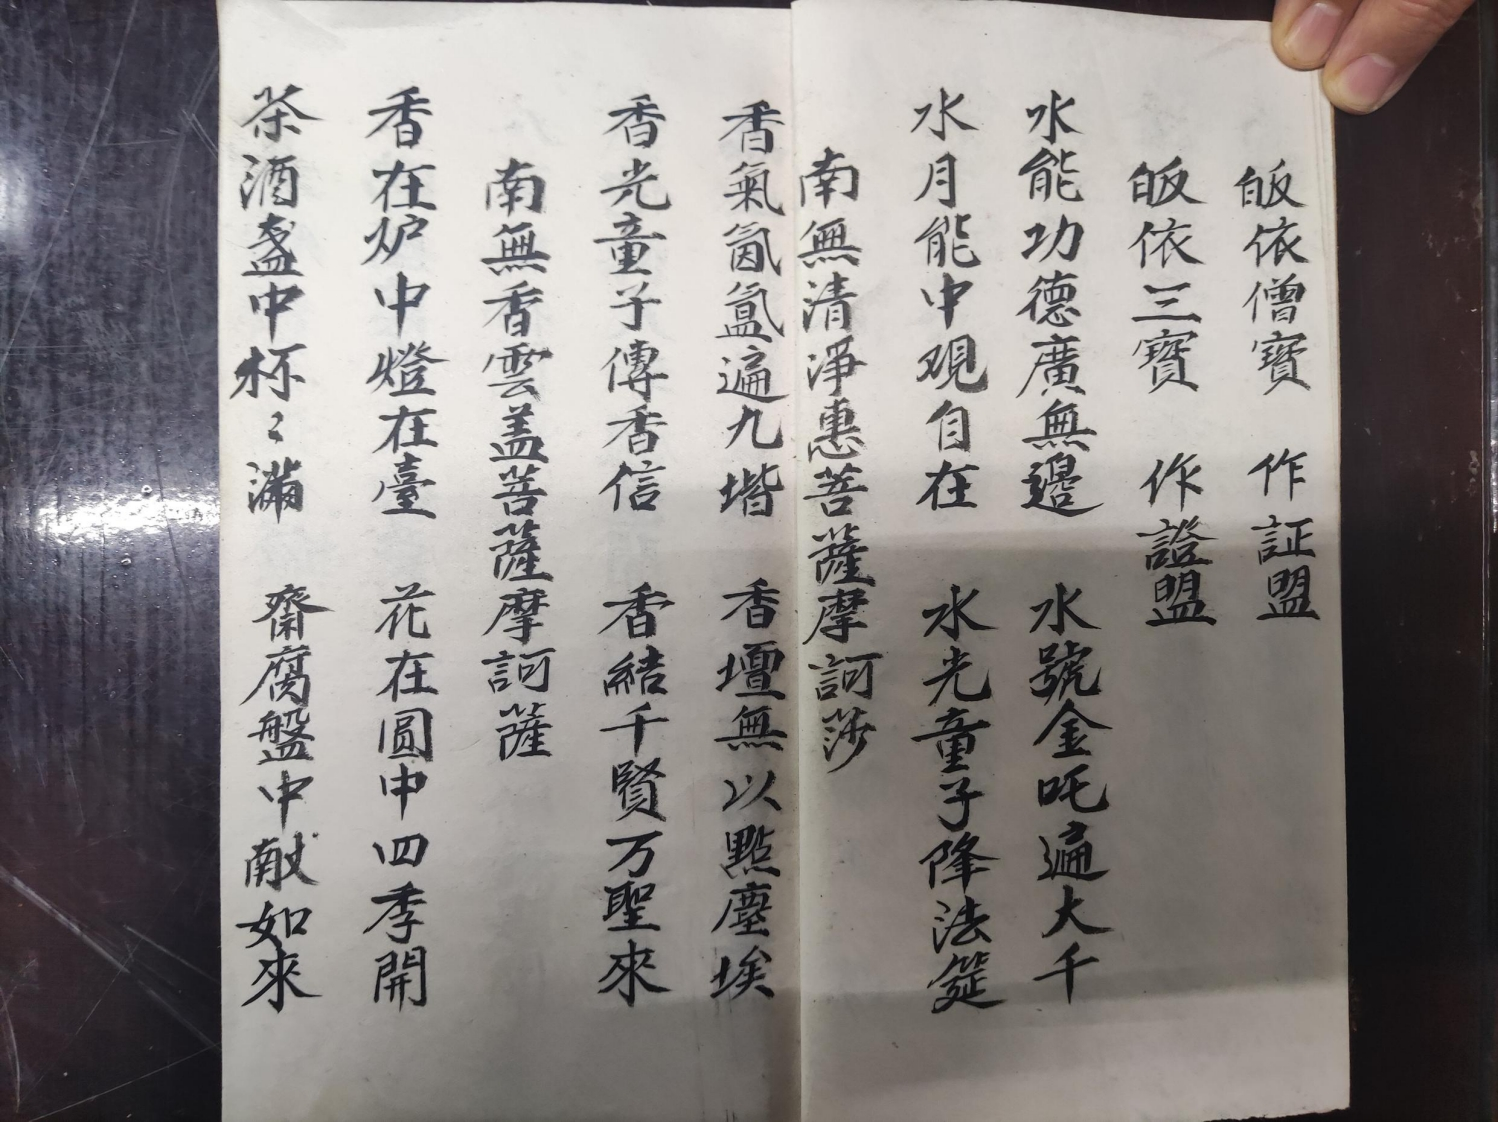 皈依僧寳　作証盟
皈依三寳　作證盟
水能功德廣無邊　水號金吒遍大千
水月能中观自在　水光童子降法筵
南無清淨惠菩薩摩訶莎
香氣氤氳遍九堦　香壇無以點塵埃
香光童子傳香信　香結千賢万聖來
南無香雲盖菩薩摩訶薩
香在炉中燈在臺　花在圓中四季開
茶酒盞中杯〻滿　齋腐盤中献如來